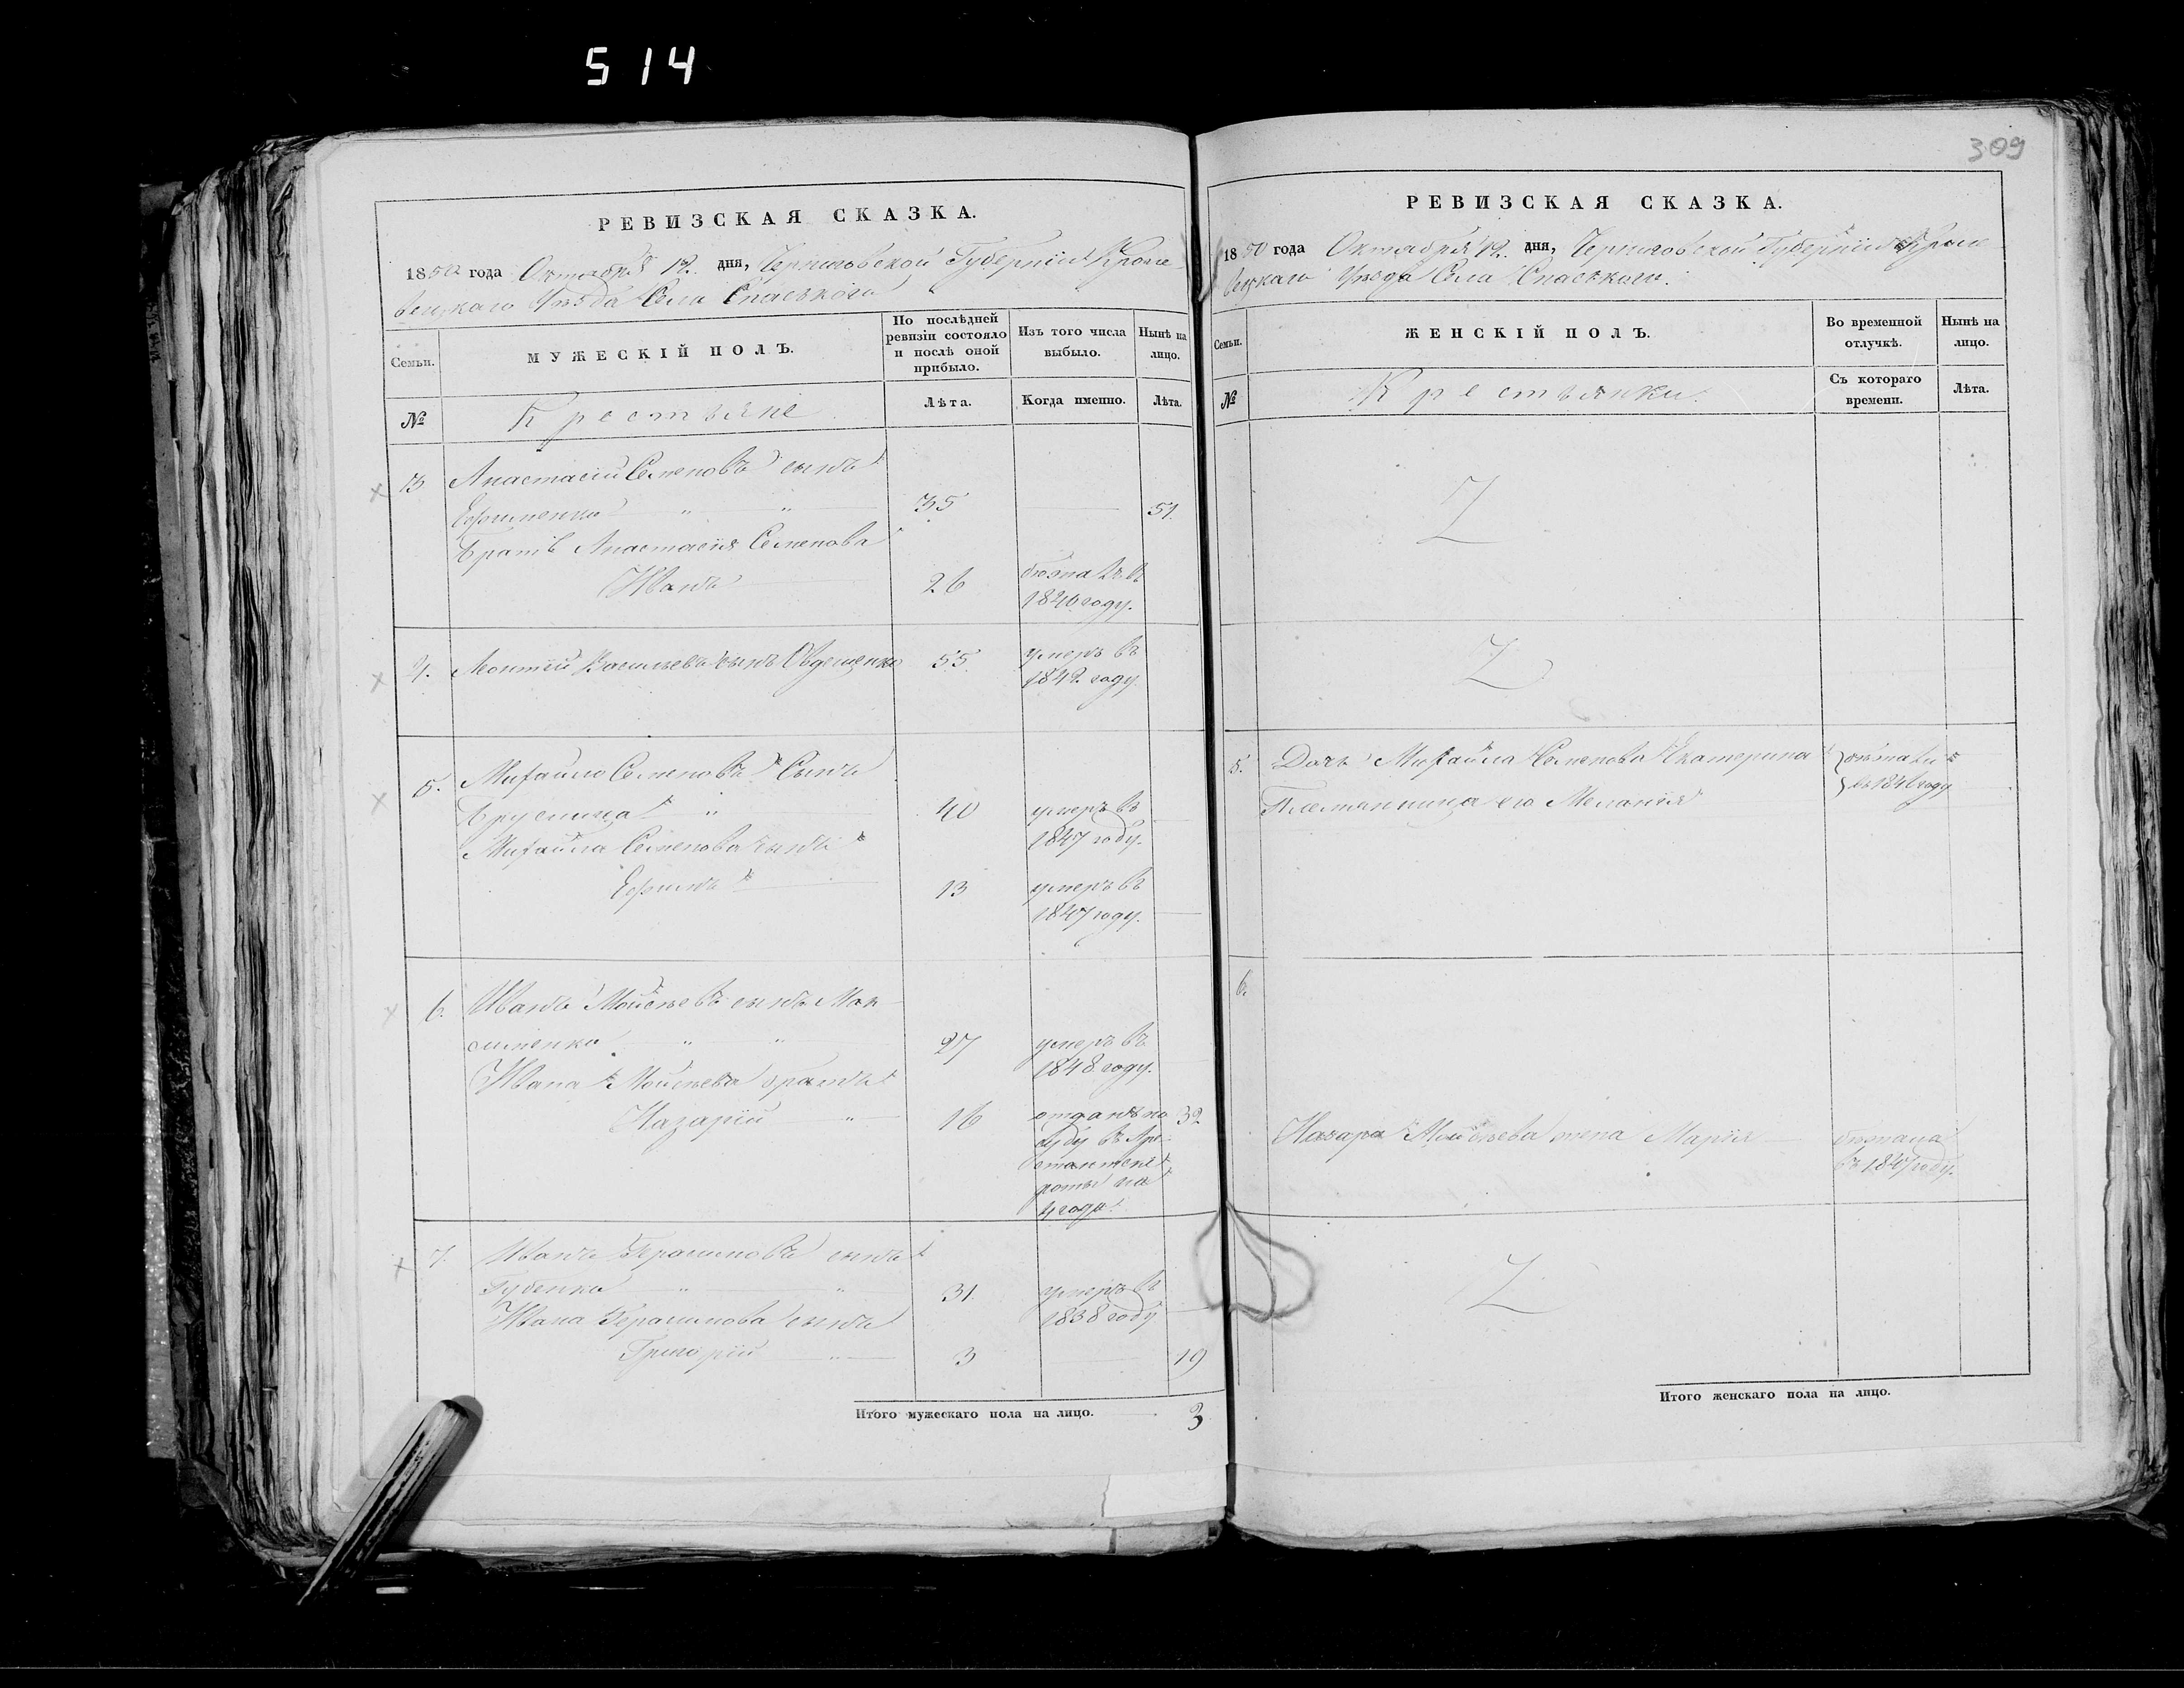 514
РЕВИЗСКАЯ СКАЗКА.
1850 года Октября 12. дня, Черниговской Губерніи Кроле-
вецкаго Уѣзда Села Спаскаго
Семьи.
МУЖЕСКІЙ ПОЛЪ.
По послѣдней
ревизіи состояло
и послѣ оной
прибыло.
Изъ того числа
выбыло.
Нынѣ на
лицо.
№
Крестьяне
Лѣта.
Когда именно.
Лѣта.
3 Анастасій Семеновъ сынъ
Ефименко " " 35 51.
Братъ Анастасія Семенова
Иванъ 26
1846 году.
4. Васильевъ сынъ 55 умеръ въ
1842. году
5. Михайло Семеновъ Сынъ
" 40 умеръ въ
1847 году.
Михайла Семенова сынъ
Ефимъ 13 умеръ въ
1847 году.
6. Иванъ Мойсеевъ сынъ Мак-
сименко " " 27 умеръ въ
1848 году.
Ивана Мойсеева братъ
Назарій " 16 отданъ по 32
суду въ Аре-
стантскіе
роты на
4 года.
7. Иванъ Герасимовъ сынъ
Губенко " " 31. умеръ въ
1838 году
Ивана Герасимова сынъ
Григорій " 3 19
Итого мужескаго пола на лицо. 3
309
РЕВИЗСКАЯ СКАЗКА.
1850 года Октября 12. дня, Черниговской Губерніи Кроле-
вецкаго Уѣзда Села Спаскаго.
Семьи.
ЖЕНСКІЙ ПОЛЪ.
Во временной
отлучкѣ.
Нынѣ на
лицо.
№
Крестьянки.
Съ котораго
времени.
Лѣта.
5. Дочь Михайла Семенова Екатерина
Племянница его Меланія въ 1846 году
6.
Назара Мойсеева жена Марія бѣжала
въ 1847 году.
Итого женскаго пола на лицо.